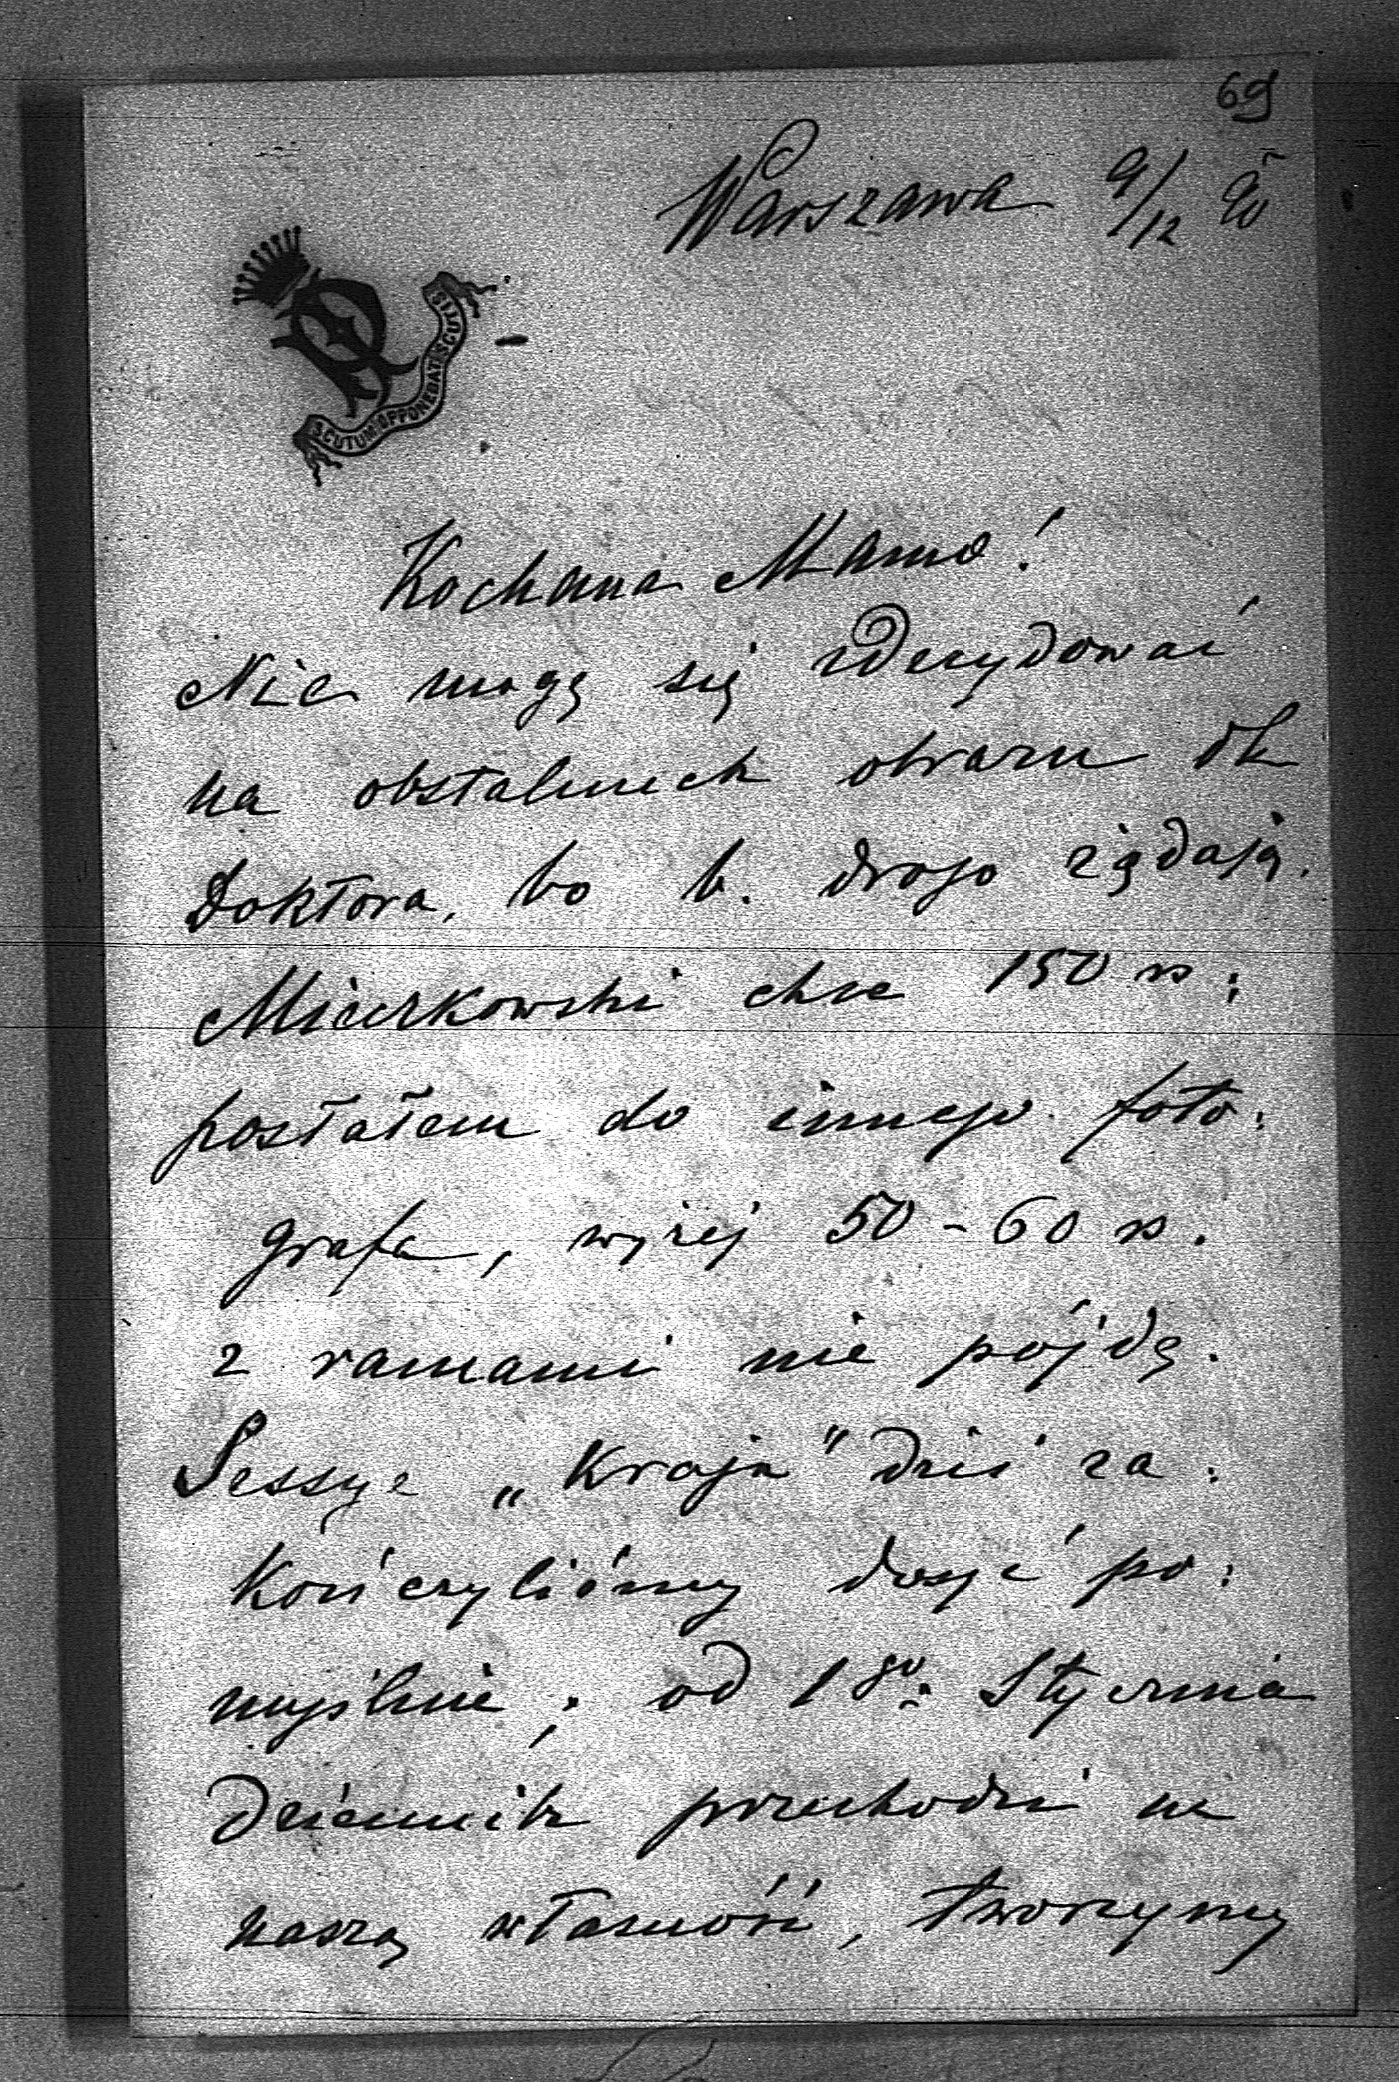 69
Warszawa 9/12 90
SCUTUM OPPONEBAT SCUTIS
Kochana Mamo!
Nie mogę się zdecydować
na obstalunek obrazu dla
Doktora, bo b. drogo żądają.
Mieczkowski chce 150 rs:
posłałem do innego foto:
grafa, wyżej 50 - 60 rs.
z ramami nie pójdę.
Sessye „Kraju" dziś za:
kończyliśmy dosyć po:
myślnie; od 1go. Stycznia
Dziennik przechodzi na
naszą własność, tworzymy